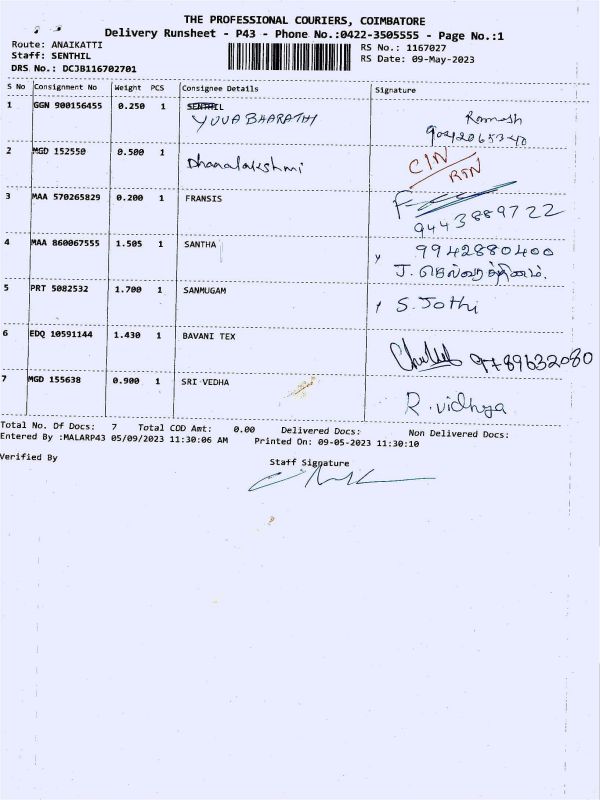 THE PROFESSIONAL COURIERS, COIMBATORE
Delivery Runsheet - P43 - Phone No.:0422-3505555 - Page No.:1
Route: ANAIKATTI
Staff: SENTHIL
DRS No.: DCJB116702701
RS No.: 1167027
RS Date: 09-May-2023
S No Consignment No Weight PCS Consignee Details Signature
1 GGN 900156455 0.250 1 SENTHIL
YUVA BHARATHI
Ramesh
2 MGD 152550 0.500 1 Dhanalakshmi
CIN
RTN
3 MAA 570265829 0.200 1 FRANSIS
9443889722
4 MAA 860067555 1.505 1 SANTHA
9942880400
5 PRT 5082532 1.700 1 SANMUGAM
S. Jothi
6 EDQ 10591144 1.430 1 BAVANI TEX
9789632080
7 MGD 155638 0.900 1 SRI VEDHA
R. vidhya
Total No. Of Docs: 7 Total COD Amt: 0.00 Delivered Docs: Non Delivered Docs:
Entered By :MALARP43 05/09/2023 11:30:06 AM Printed On: 09-05-2023 11:30:10
Verified By
Staff Signature